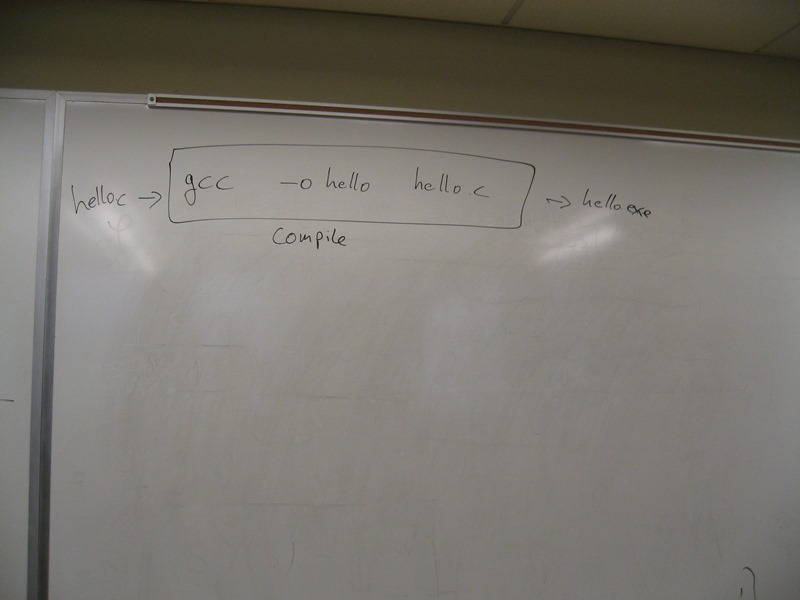 hello.c → gcc -o hello hello.c → hello.exe
compile